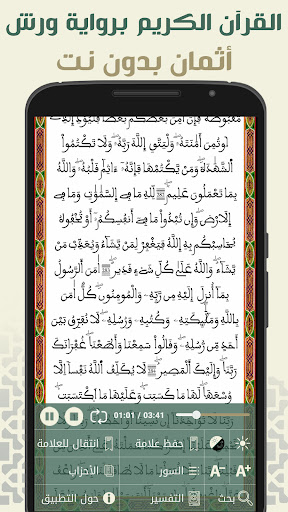 القرآن الكريم برواية ورش
أثمان بدون نت
مَّقْبُوضَةٌ فَإِنْ أَمِنَ بَعْضُكُم بَعْضاً فَلْيُؤَدِّ الذِے
اِ۟وتُمِنَ أَمَٰنَتَهُۥ وَلْيَتَّقِ اِ۬للَّهَ رَبَّهُۥ وَلَا تَكْتُمُواْ
اُ۬لشَّهَٰدَةَ وَمَنْ يَّكْتُمْهَا فَإِنَّهُۥٓ ءَاثِمٞ قَلْبُهُۥ وَاللَّهُ
بِمَا تَعْمَلُونَ عَلِيمٞ لِّلهِ مَا فِے اِ۬لسَّمَٰوَٰتِ وَمَا فِے
اِ۬لَارْضِ وَإِن تُبْدُواْ مَا فِےٓ أَنفُسِكُمُۥٓ أَوْ تُخْفُوهُ
يُحَاسِبْكُم بِهِ اِ۬للَّهُ فَيَغْفِرْ لِمَنْ يَّشَآءُ وَيُعَذِّب مَّنْ
يَّشَآءُ وَاللَّهُ عَلَىٰ كُلِّ شَےْءٖ قَدِيرٌ ءَامَنَ اَ۬لرَّسُولُ
بِمَآ أُنزِلَ إِلَيْهِ مِن رَّبِّهِۦ وَالْمُومِنُونَ كُلٌّ اٰمَنَ
بِاللَّهِ وَمَلَٰٓئِكَتِهِۦ وَكُتُبِهِۦ وَرُسُلِهِۦ لَا نُفَرِّقُ بَيْنَ
أَحَدٖ مِّن رُّسُلِهِۦ وَقَالُواْ سَمِعْنَا وَأَطَعْنَا غُفْرَانَكَ
رَبَّنَا وَإِلَيْكَ اَ۬لْمَصِيرُ لَا يُكَلِّفُ اُ۬للَّهُ نَفْساً اِلَّا
وُسْعَهَا لَهَا مَا كَسَبَتْ وَعَلَيْهَا مَا اَ۪كْتَسَبَتْ
01:01 / 03:41
حفظ علامة
انتقال للعلامة
A+ A- السور
الأحزاب
بحث
التفسير
حول التطبيق